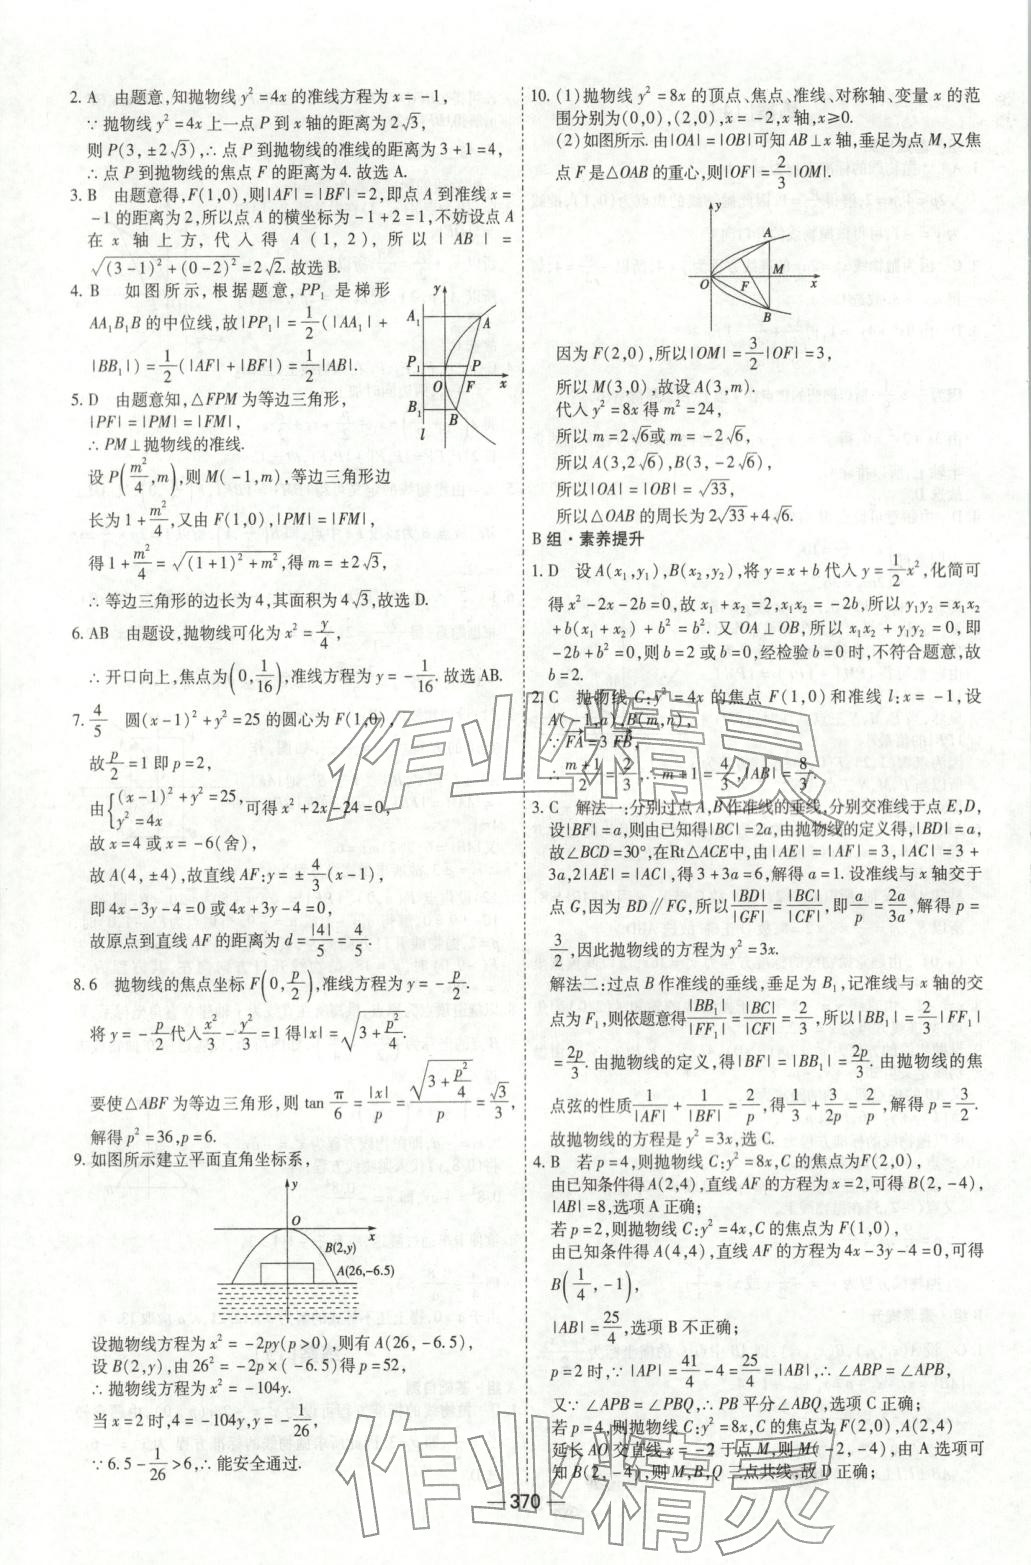 2. A　由题意,知抛物线 y²=4x的准线方程为 x=-1,
∵抛物线 y²=4x上一点 P 到 x轴的距离为 2√3,
则 P(3,±2√3),∴点 P 到抛物线的准线的距离为 3+1=4,
∴点 P 到抛物线的焦点 F 的距离为 4. 故选 A.
3. B　由题意得,F(1,0),则|AF|=|BF|=2,即点 A 到准线 x=
-1 的距离为 2,所以点 A 的横坐标为-1+2=1,不妨设点 A
在 x 轴上方,代入得 A(1,2),所以|AB|=
√((3-1)²+(0-2)²)=2√2. 故选 B.
4. B　如图所示,根据题意,PP₁ 是梯形
AA₁B₁B 的中位线,故|PP₁|=1/2(|AA₁|+
|BB₁|)=1/2(|AF|+|BF|)=1/2|AB|.
y
A₁
A
P₁
P
O
F
x
B₁
B
l
5. D　由题意知,△FPM 为等边三角形,
|PF|=|PM|=|FM|,
∴PM⊥抛物线的准线.
设 P(m²/4,m),则 M(-1,m),等边三角形边
长为 1+m²/4,又由 F(1,0),|PM|=|FM|,
得 1+m²/4=√((1+1)²+m²),得 m=±2√3,
∴等边三角形的边长为 4,其面积为 4√3,故选 D.
6. AB　由题设,抛物线可化为 x²=y/4,
∴开口向上,焦点为(0,1/16),准线方程为 y=-1/16. 故选 AB.
7. 4/5　圆(x-1)²+y²=25 的圆心为 F(1,0),
故p/2=1 即 p=2,
由{(x-1)²+y²=25, y²=4x 可得 x²+2x-24=0,
故 x=4 或 x=-6(舍),
故 A(4,±4),故直线 AF:y=±4/3(x-1),
即 4x-3y-4=0 或 4x+3y-4=0,
故原点到直线 AF 的距离为 d=|4|/5=4/5.
8. 6　抛物线的焦点坐标 F(0,p/2),准线方程为 y=-p/2.
将 y=-p/2代入x²/3-y²/3=1 得|x|=√(3+p²/4).
要使△ABF 为等边三角形,则 tan π/6=|x|/p=√(3+p²/4)/p=√3/3,
解得 p²=36,p=6.
9. 如图所示建立平面直角坐标系,
y
O
x
B(2,y)
A(26,-6.5)
设抛物线方程为 x²=-2py(p>0),则有 A(26,-6.5),
设 B(2,y),由 26²=-2p×(-6.5)得 p=52,
∴抛物线方程为 x²=-104y.
当 x=2 时,4=-104y,y=-1/26,
∵6.5-1/26>6,∴能安全通过.
10. (1)抛物线 y²=8x 的顶点、焦点、准线、对称轴、变量 x 的范
围分别为(0,0),(2,0),x=-2,x轴,x≥0.
(2)如图所示. 由|OA|=|OB|可知 AB⊥x 轴,垂足为点 M,又焦
点 F 是△OAB 的重心,则|OF|=2/3|OM|.
y
A
O
F
M
x
B
因为 F(2,0),所以|OM|=3/2|OF|=3,
所以 M(3,0),故设 A(3,m).
代入 y²=8x 得 m²=24,
所以 m=2√6或 m=-2√6,
所以 A(3,2√6),B(3,-2√6),
所以|OA|=|OB|=√33,
所以△OAB 的周长为 2√33+4√6.
B 组·素养提升
1. D　设 A(x₁,y₁),B(x₂,y₂),将 y=x+b 代入 y=1/2x²,化简可
得 x²-2x-2b=0,故 x₁+x₂=2,x₁x₂=-2b,所以 y₁y₂=x₁x₂
+b(x₁+x₂)+b²=b². 又 OA⊥OB,所以 x₁x₂+y₁y₂=0,即
-2b+b²=0,则 b=2 或 b=0,经检验 b=0 时,不符合题意,故
b=2.
2. C　抛物线 C:y²=4x 的焦点 F(1,0)和准线 l:x=-1,设
A(-1,a),B(m,n),
∵FA=3FB,
∴(m+1)/2=2/3,∴m+1=4/3,|AB|=8/3.
3. C　解法一:分别过点 A,B 作准线的垂线,分别交准线于点 E,D,
设|BF|=a,则由已知得|BC|=2a,由抛物线的定义得,|BD|=a,
故∠BCD=30°,在Rt△ACE中,由|AE|=|AF|=3,|AC|=3+
3a,2|AE|=|AC|,得 3+3a=6,解得 a=1. 设准线与 x轴交于
点 G,因为 BD∥FG,所以|BD|/|GF|=|BC|/|CF|,即a/p=2a/3a,解得 p=
3/2,因此抛物线的方程为 y²=3x.
解法二:过点 B 作准线的垂线,垂足为 B₁,记准线与 x轴的交
点为 F₁,则依题意得|BB₁|/|FF₁|=|BC|/|CF|=2/3,所以|BB₁|=2/3|FF₁|
=2p/3. 由抛物线的定义,得|BF|=|BB₁|=2p/3. 由抛物线的焦
点弦的性质1/|AF|+1/|BF|=2/p,得1/3+3/2p=2/p,解得 p=3/2.
故抛物线的方程是 y²=3x,选 C.
4. B　若 p=4,则抛物线 C:y²=8x,C 的焦点为F(2,0),
由已知条件得 A(2,4),直线 AF 的方程为 x=2,可得 B(2,-4),
|AB|=8,选项 A 正确;
若 p=2,则抛物线 C:y²=4x,C 的焦点为 F(1,0),
由已知条件得 A(4,4),直线 AF 的方程为 4x-3y-4=0,可得
B(1/4,-1),
|AB|=25/4,选项 B 不正确;
p=2 时,∵|AP|=41/4-4=25/4=|AB|,∴∠ABP=∠APB,
又∵∠APB=∠PBQ,∴PB 平分∠ABQ,选项 C 正确;
若 p=4,则抛物线 C:y²=8x,C 的焦点为 F(2,0),A(2,4)
延长 AO 交直线 x=-2 于点 M,则 M(-2,-4),由 A 选项可
知 B(2,-4),则 M,B,Q 三点共线,故 D 正确;
370
作业精灵
作业精灵